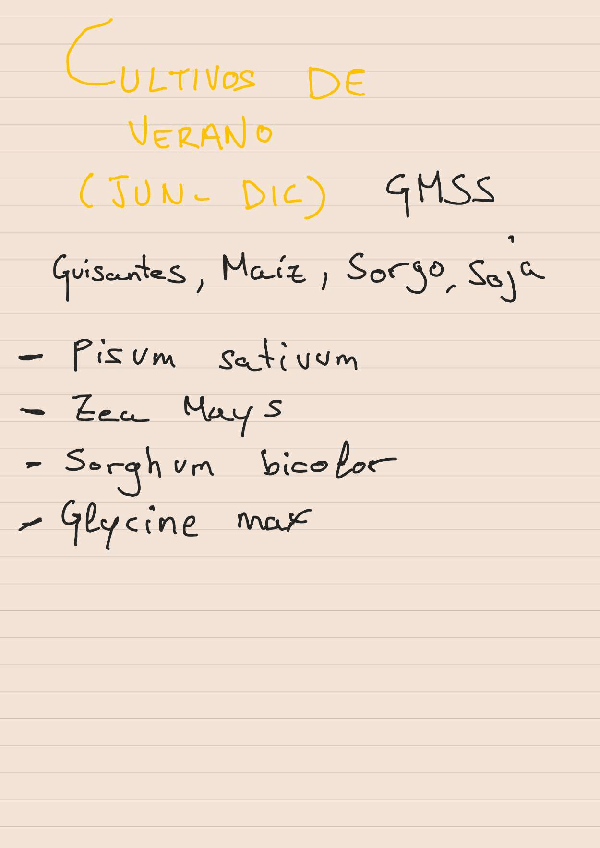 CULTIVOS DE
VERANO
(JUN- DIC) GMSS
Guisantes, Maíz, Sorgo, Soja
- Pisum sativum
- Zea Mays
- Sorghum bicolor
- Glycine max